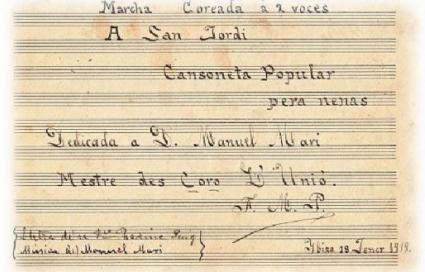 Marcha Coreada a 2 voces
A San Jordi
Cansoneta Popular
pera nenas
Dedicada a D. Manuel Mari
Mestre des Coro L'Unió.
F. M. P.
Lletra de
Música de Manuel Mari
Ibiza 18 Janer 1919.